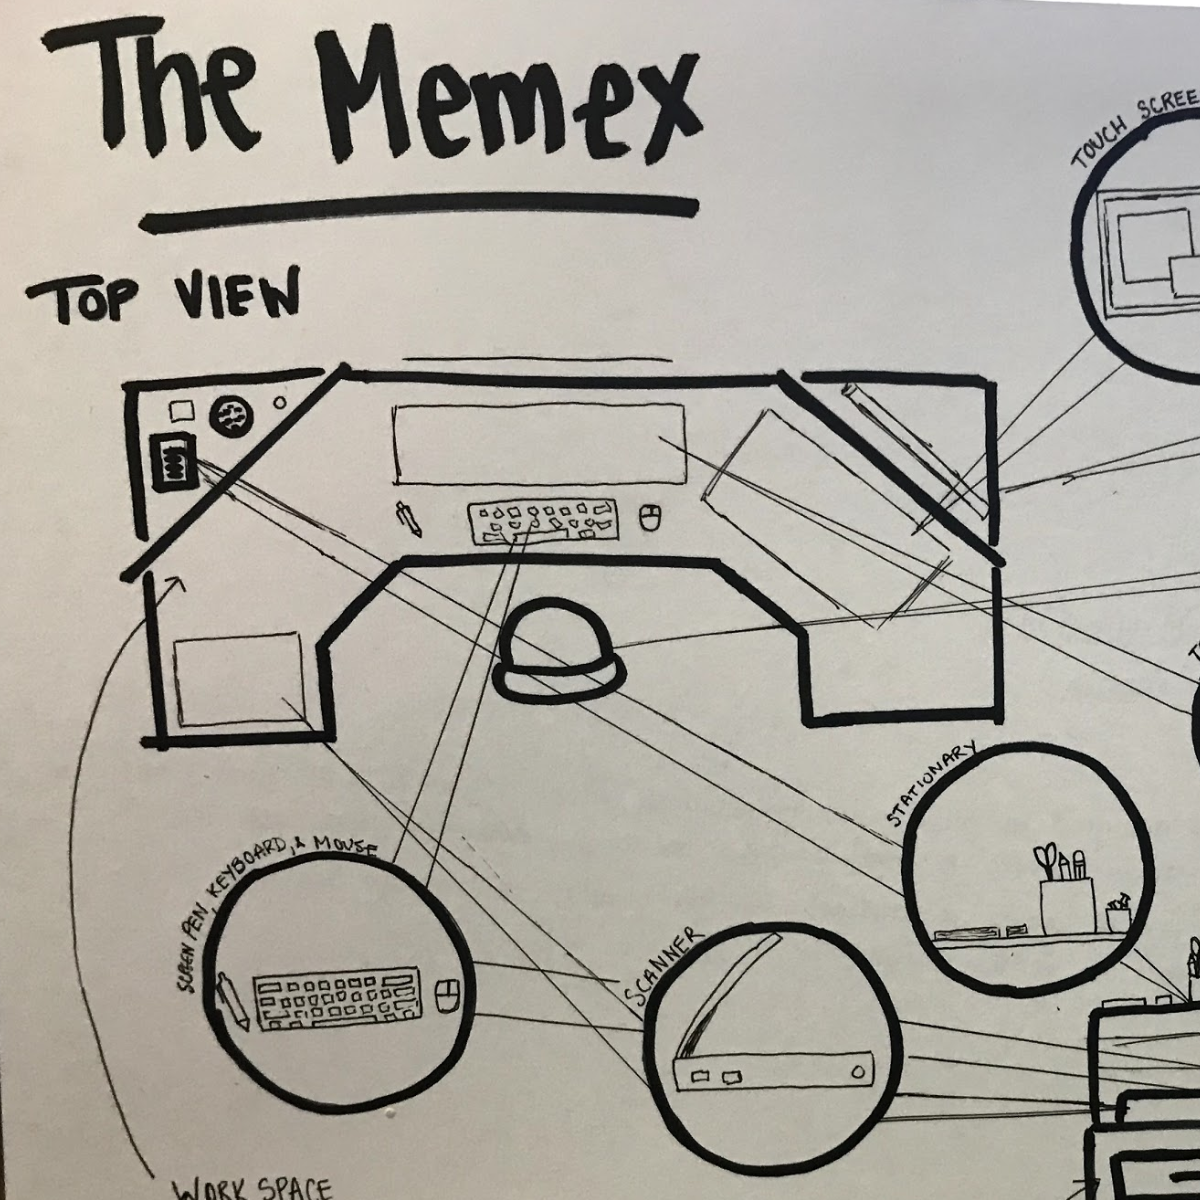 The Memex
TOUCH SCREE
TOP VIEW
STATIONARY
SCREEN PEN, KEYBOARD, & MOUSE
SCANNER
WORK SPACE